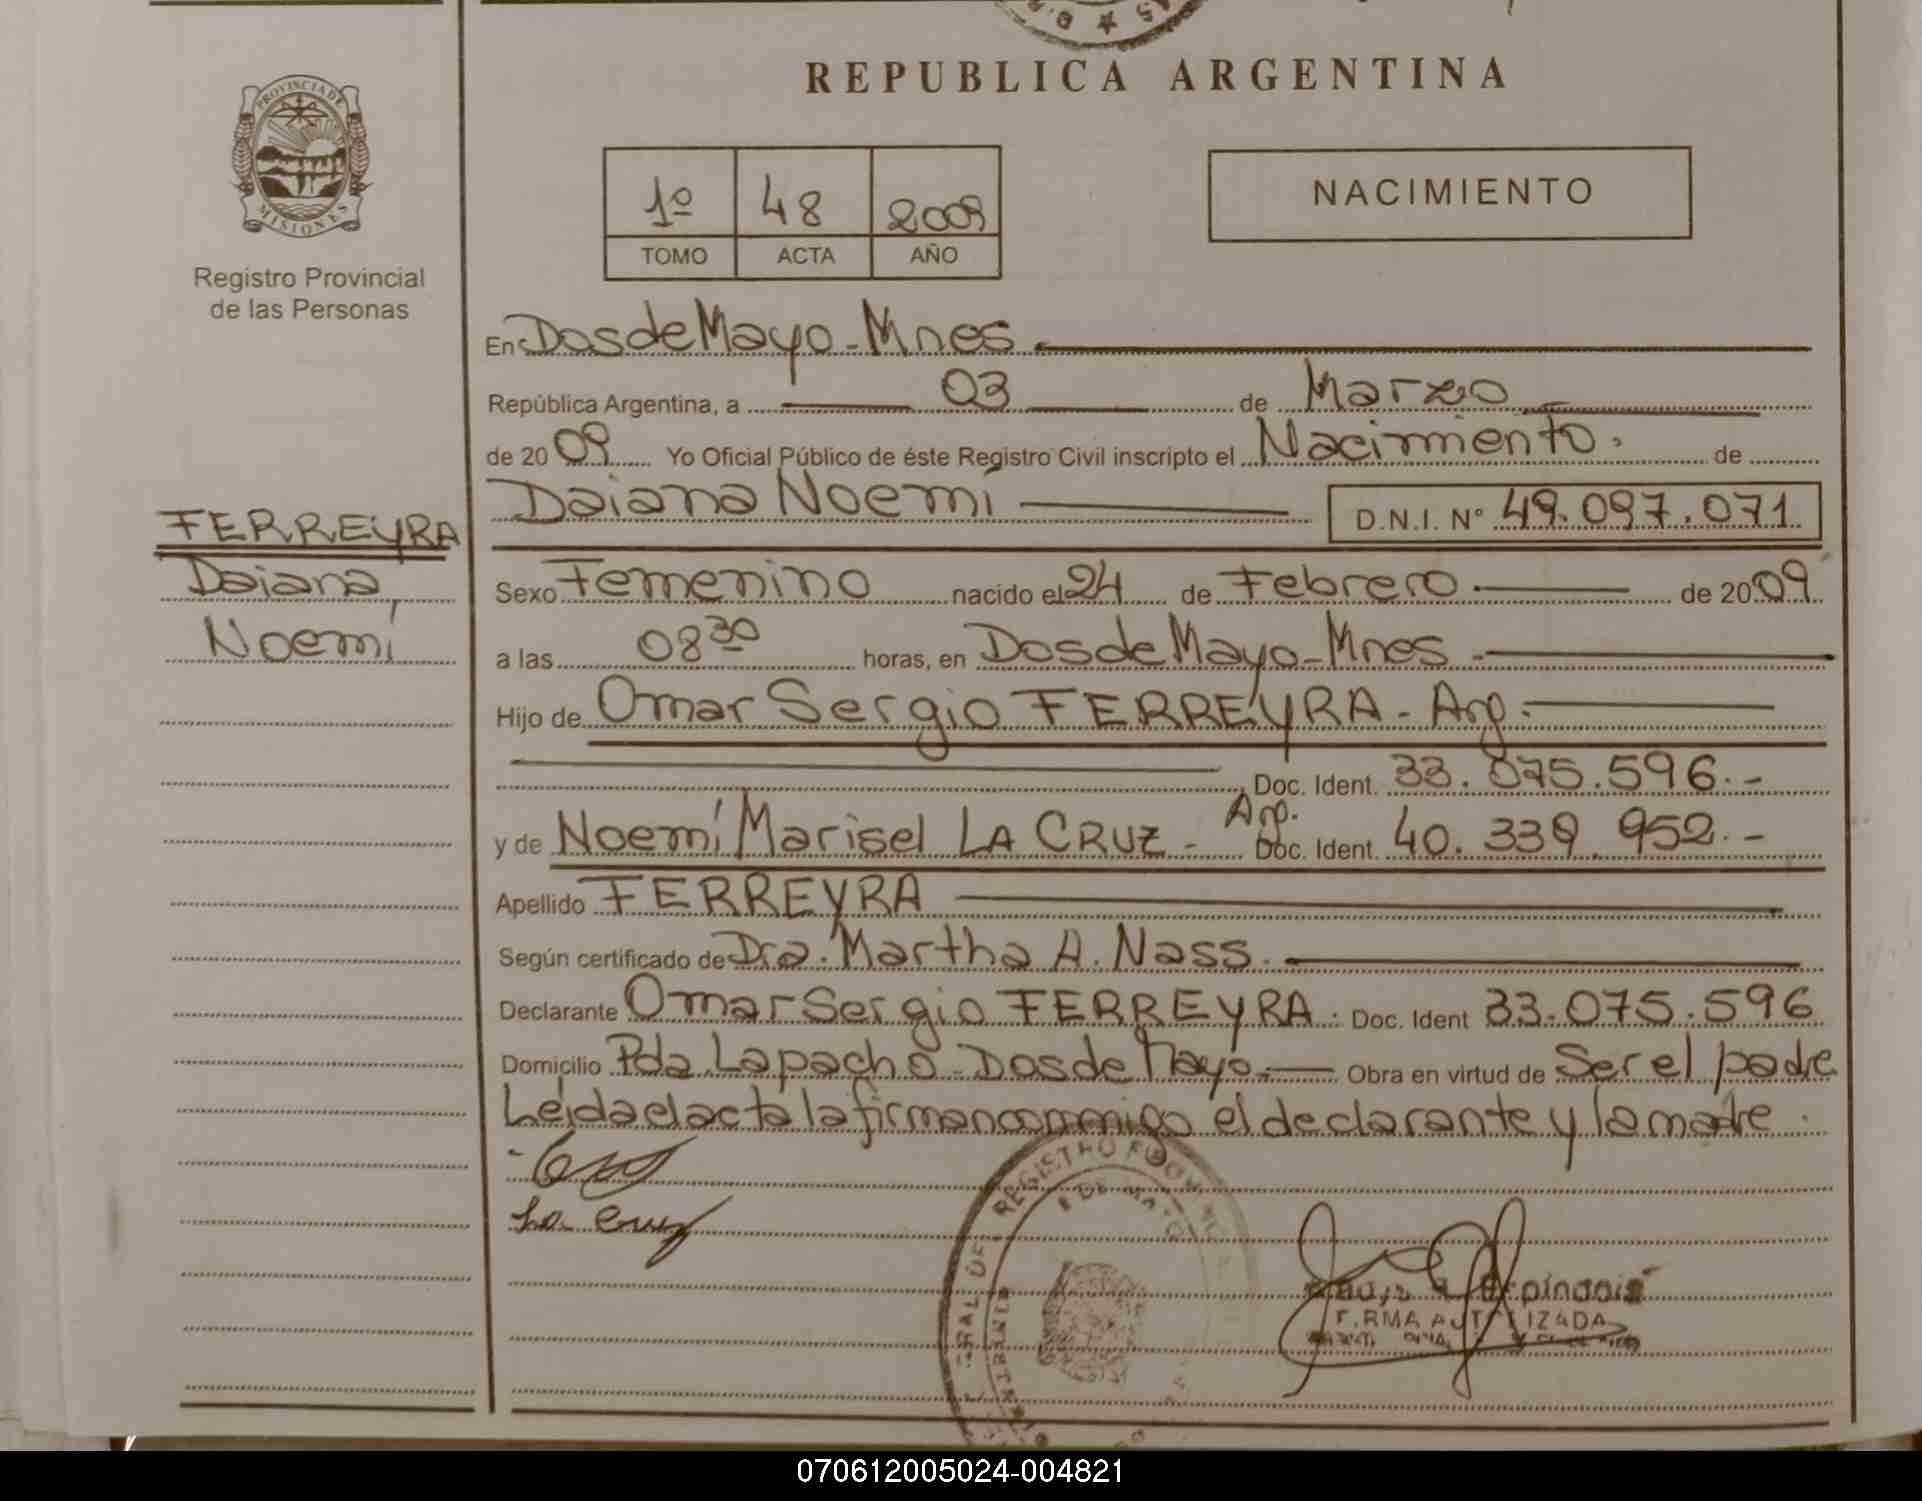 REPUBLICA ARGENTINA
PROVINCIA DE
MISIONES
Registro Provincial
de las Personas
1º 48 2009
TOMO ACTA AÑO
NACIMIENTO
En Dos de Mayo - Mnes.
República Argentina, a 03 de Marzo
de 2009 Yo Oficial Público de éste Registro Civil inscripto el Nacimiento. de
Daiana Noemí D.N.I. Nº 49.097.071
FERREYRA
Daiana
Noemí
Sexo Femenino nacido el 24 de Febrero de 2009
a las 08 30 horas, en Dos de Mayo - Mnes.
Hijo de Omar Sergio FERREYRA - Arg.
Doc. Ident. 33.075.596.-
y de Noemí Marisel LA CRUZ - Arg. Doc. Ident. 40.339.952.-
Apellido FERREYRA
Según certificado de Dra. Martha A. Nass.
Declarante Omar Sergio FERREYRA. Doc. Ident 33.075.596
Domicilio Pda. Lapacho - Dos de Mayo. Obra en virtud de Ser el padre
Leída el acta la firman conmigo el declarante y la madre.
La Cruz
070612005024-004821